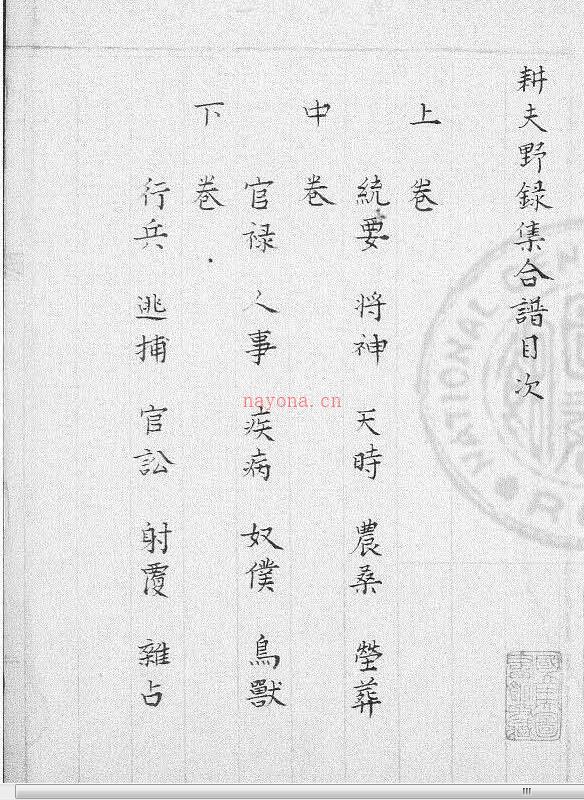 耕夫野録集合譜目次
上卷
統要 将神 天時 農桑 塋葬
中卷
官禄 人事 疾病 奴僕 鳥獸
下卷
行兵 逃捕 官訟 射覆 雜占
nayona.cn
NATIONAL CEN